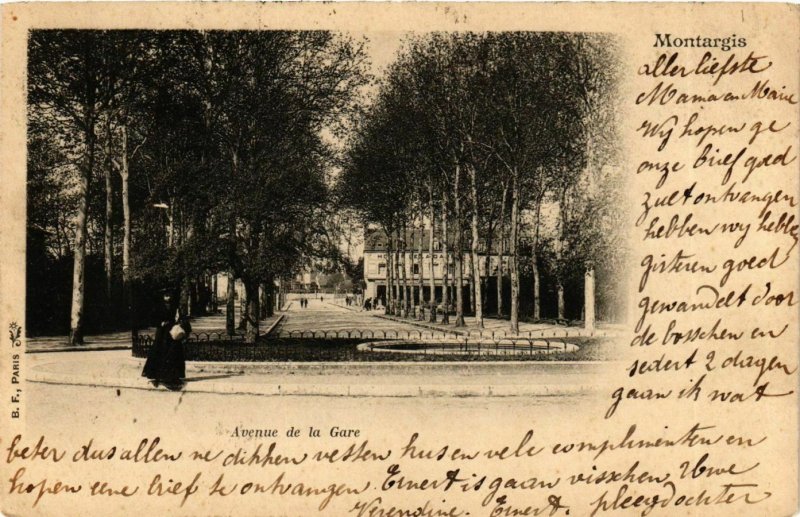 Montargis
aller liefste
Mama en Marie
Wij hopen ge
onze brief goed
zult ontvangen
hebben wij hebbe
gisteren goed
gewandelt door
de bosschen en
sedert 2 dagen
gaan ik wat
B. F., PARIS
Avenue de la Gare
beter dus allen ne dikken vesten kus en vele complimenten en
hopen eene brief te ontvangen. Ernert is gaan visschen. Uwe
Verendine. Ernert. pleegdochter